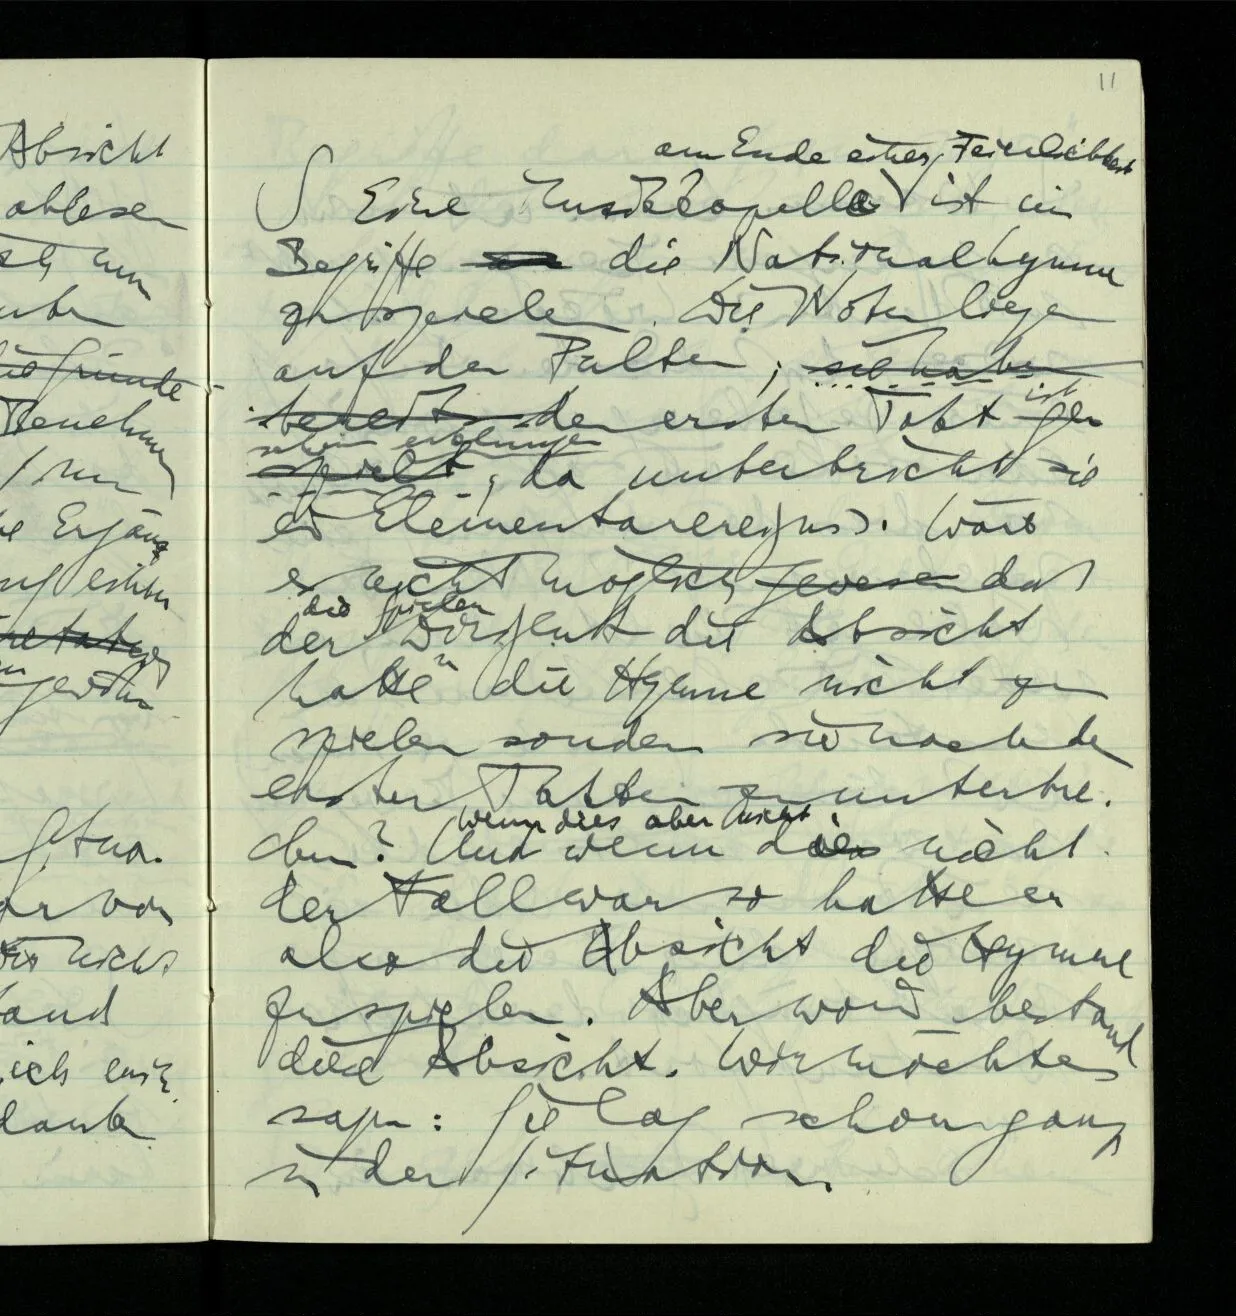 Absicht
ablesen
nun
Gründe
Benehmen
/ nur
Ergänz
auf einen
Situa.
gar von
nicht
tand
sich ein
11
am Ende einer Feierlichkeit
S Eine Musikkapelle ist im
Begriffe die Nationalhymne
zu spielen. Die Noten liegen
auf den Pulten; sie haben
bereits den ersten Takt ge
ist
schon erklungen
spielt, da unterbricht sie
ein Elementarereignis. Wäre
es nicht möglich gewesen daß
die Spielen
der Dirigent die Absicht
hatte n die Hymne nicht zu
spielen sondern sie nach den
ersten Takten zu unterbre.
wenn dies aber nicht
chen? Und wenn dies nicht
der Fall war so hatte er
also die Absicht die Hymne
zu spielen. Aber worin bestand
diese Absicht. Wir möchten
sagen: Sie lag schon ganz
in der Situation.